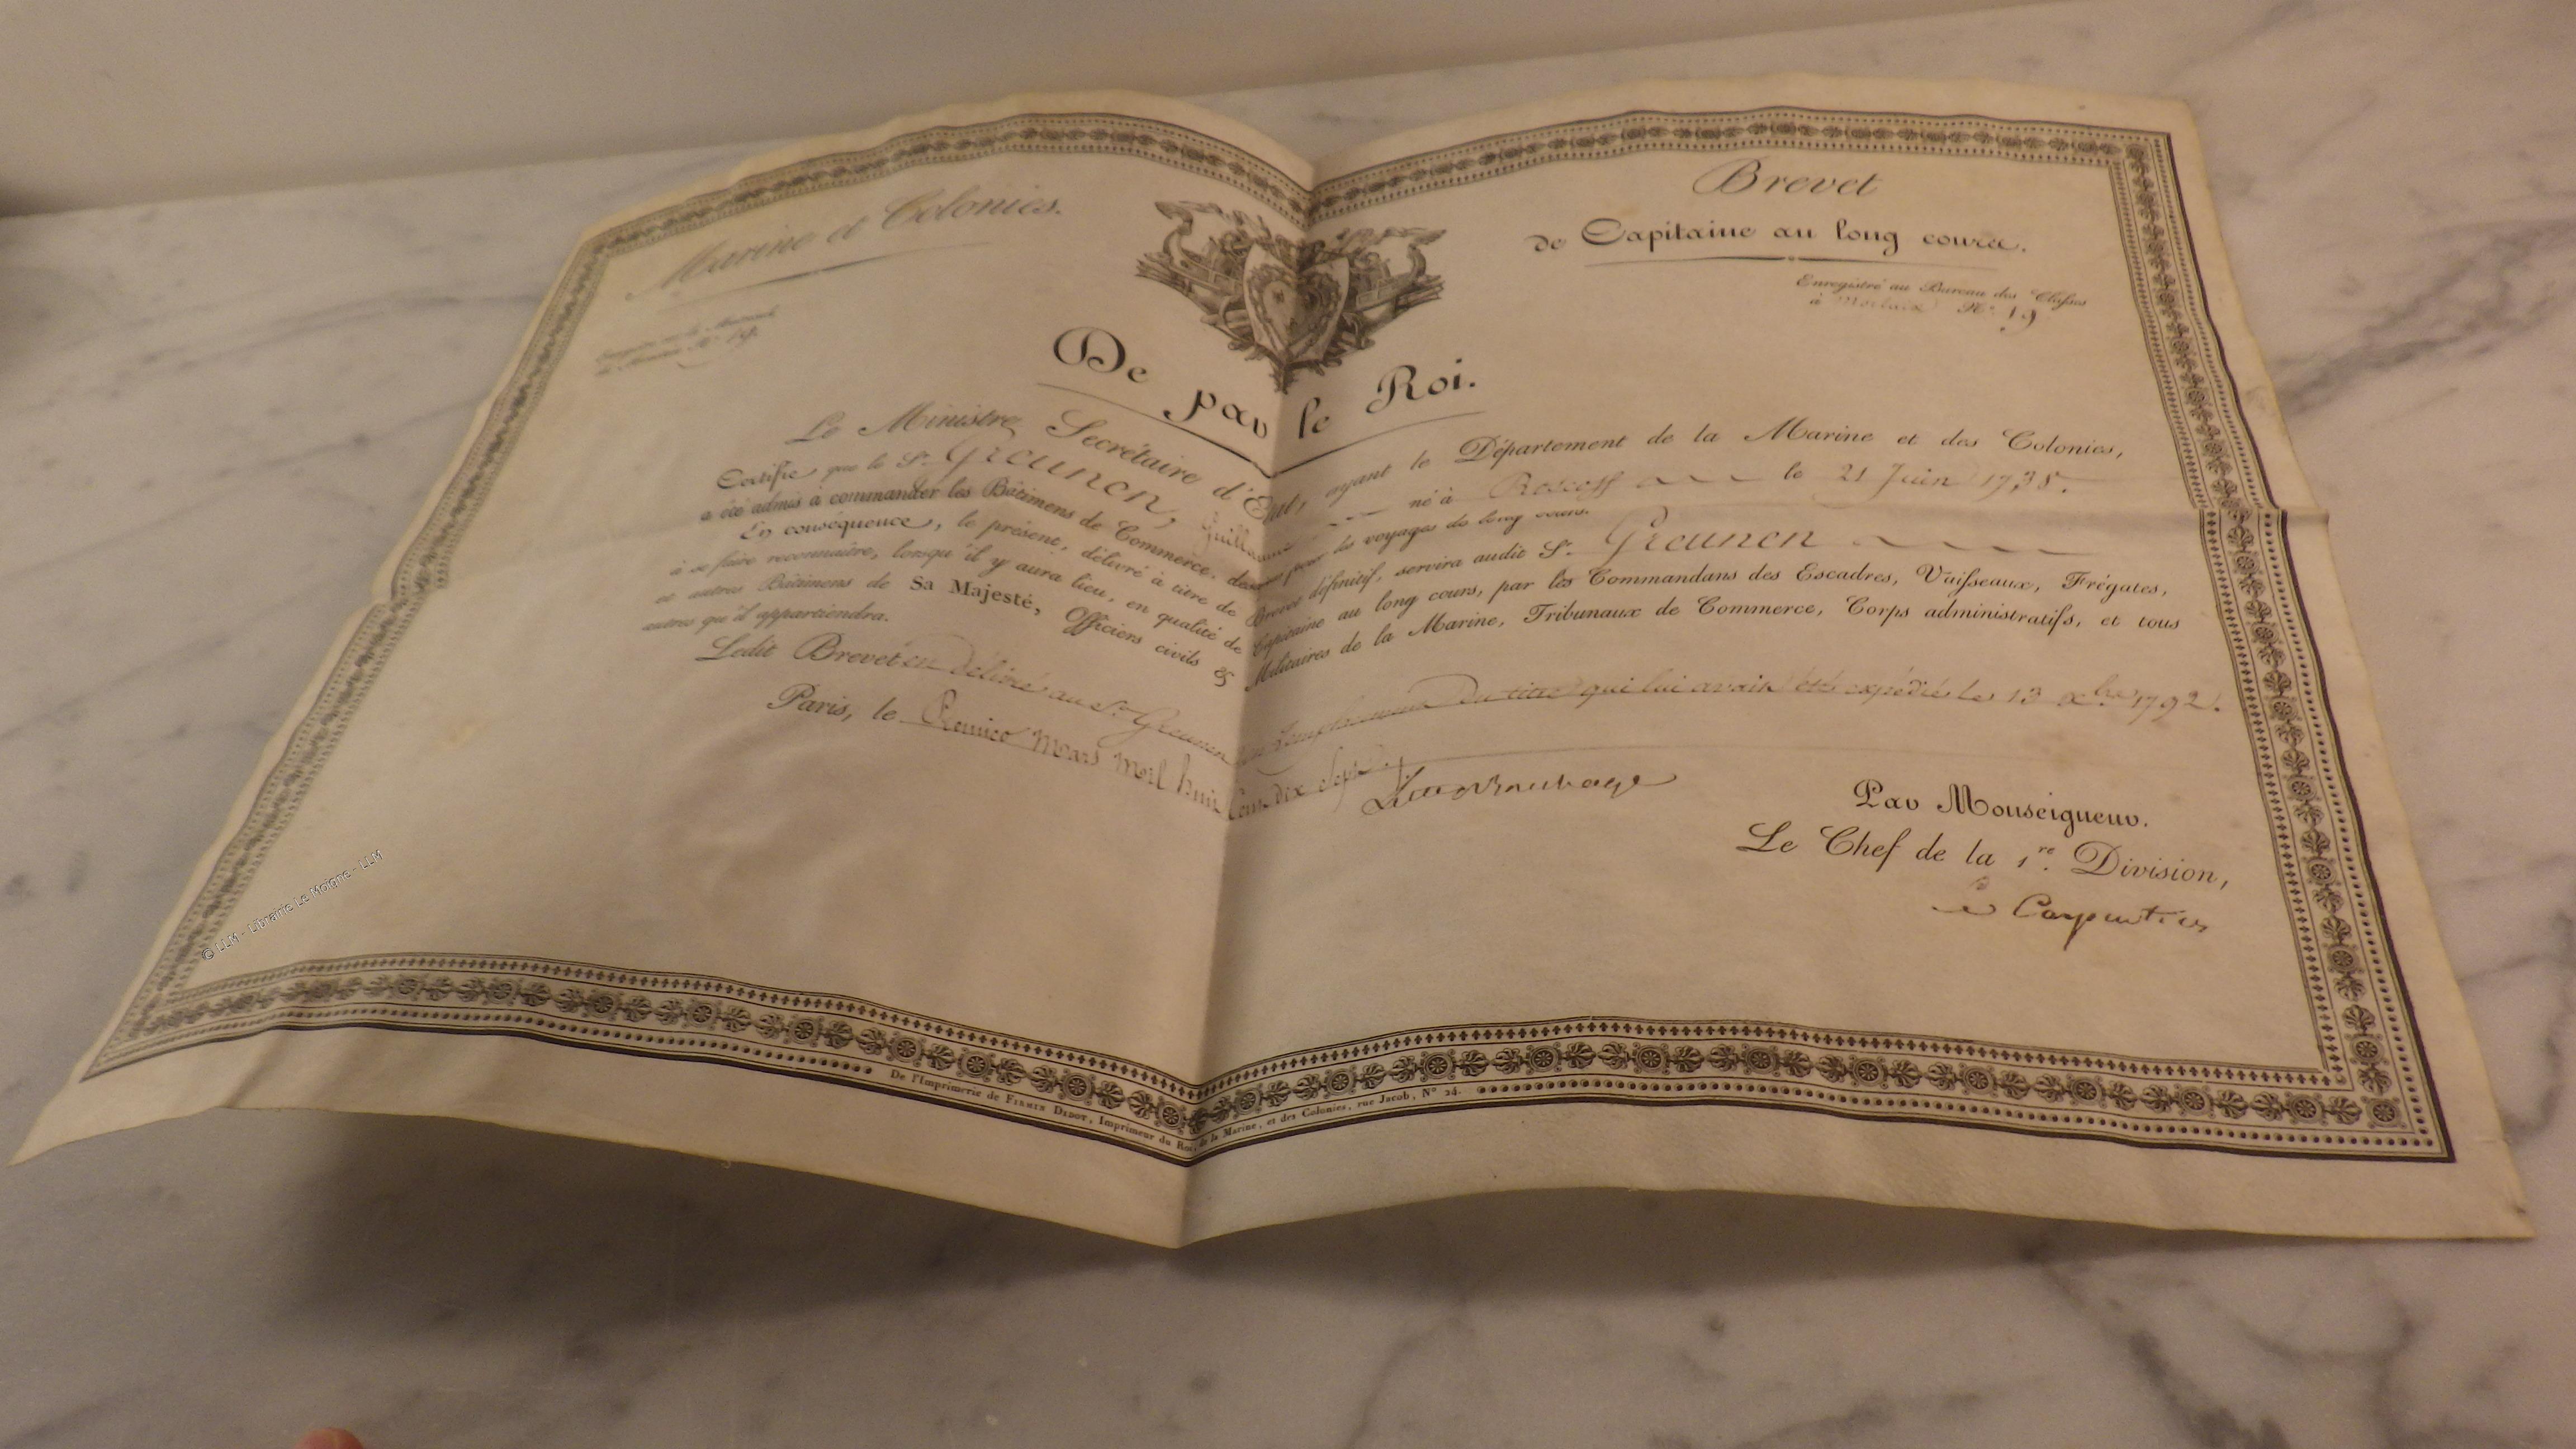 Marine et Colonies.
Brevet
de Capitaine au long cours.
Enregistré au Bureau des Classes
à Morlaix N.º 19
N.º 19.
De par le Roi.
Le Ministre Secrétaire d'État, ayant le Département de la Marine et des Colonies,
Certifie que le S.r Greunen, Guillaume né à Roscoff le 21 Juin 1738.
a été admis à commander les Bâtimens de Commerce, destinés pour les voyages de long cours.
En conséquence, le présent, délivré à titre de Brevet définitif, servira audit S.r Greunen
à se faire reconnaître, lorsqu'il y aura lieu, en qualité de Capitaine au long cours, par les Commandans des Escadres, Vaisseaux, Frégates,
et autres Bâtimens de Sa Majesté, Officiers civils & Militaires de la Marine, Tribunaux de Commerce, Corps administratifs, et tous
autres qu'il appartiendra.
Ledit Brevet en délivré au S.r Greunen en Remplacement du titre qui lui avait été expédié le 13 x.bre 1792.
Paris, le Premier Mars mil huit Cent dix Sept.
Par Monseigneur.
Le Chef de la 1.re Division,
Le Carpentier
De l'Imprimerie de Firmin Didot, Imprimeur du Roi, de la Marine, et des Colonies, rue Jacob, N° 24.
© LLM - Librairie Le Moigne - LLM